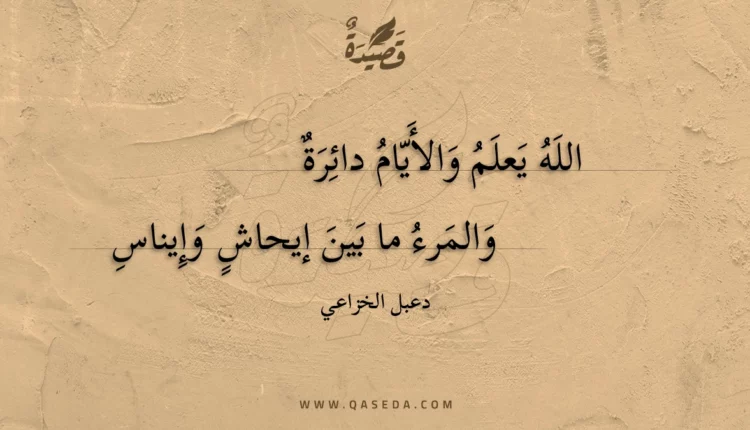 قَصِيدَةٌ
اللَهُ يَعلَمُ وَالأَيّامُ دائِرَةٌ
وَالمَرءُ ما بَينَ إيحاشٍ وَإِيناسِ
دعبل الخزاعي
WWW.QASEDA.COM